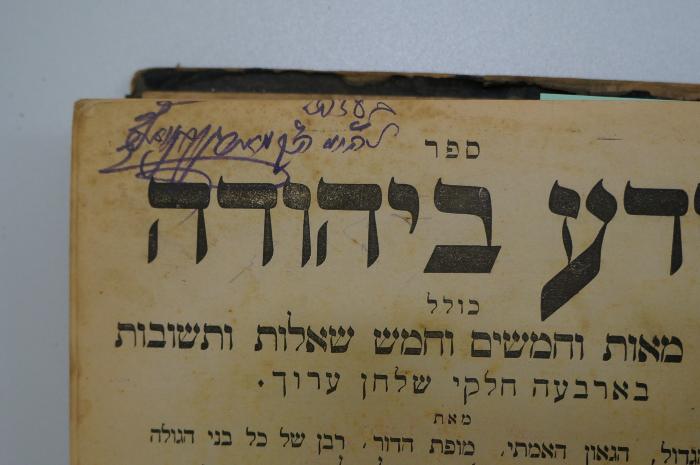 ספר
דע ביהודה
כולל
מאות וחמשים וחמש שאלות ותשובות
בארבעה חלקי שלחן ערוך.
מאת
גדול, הגאון האמתי, מופת הדור, רבן של כל בני הגולה